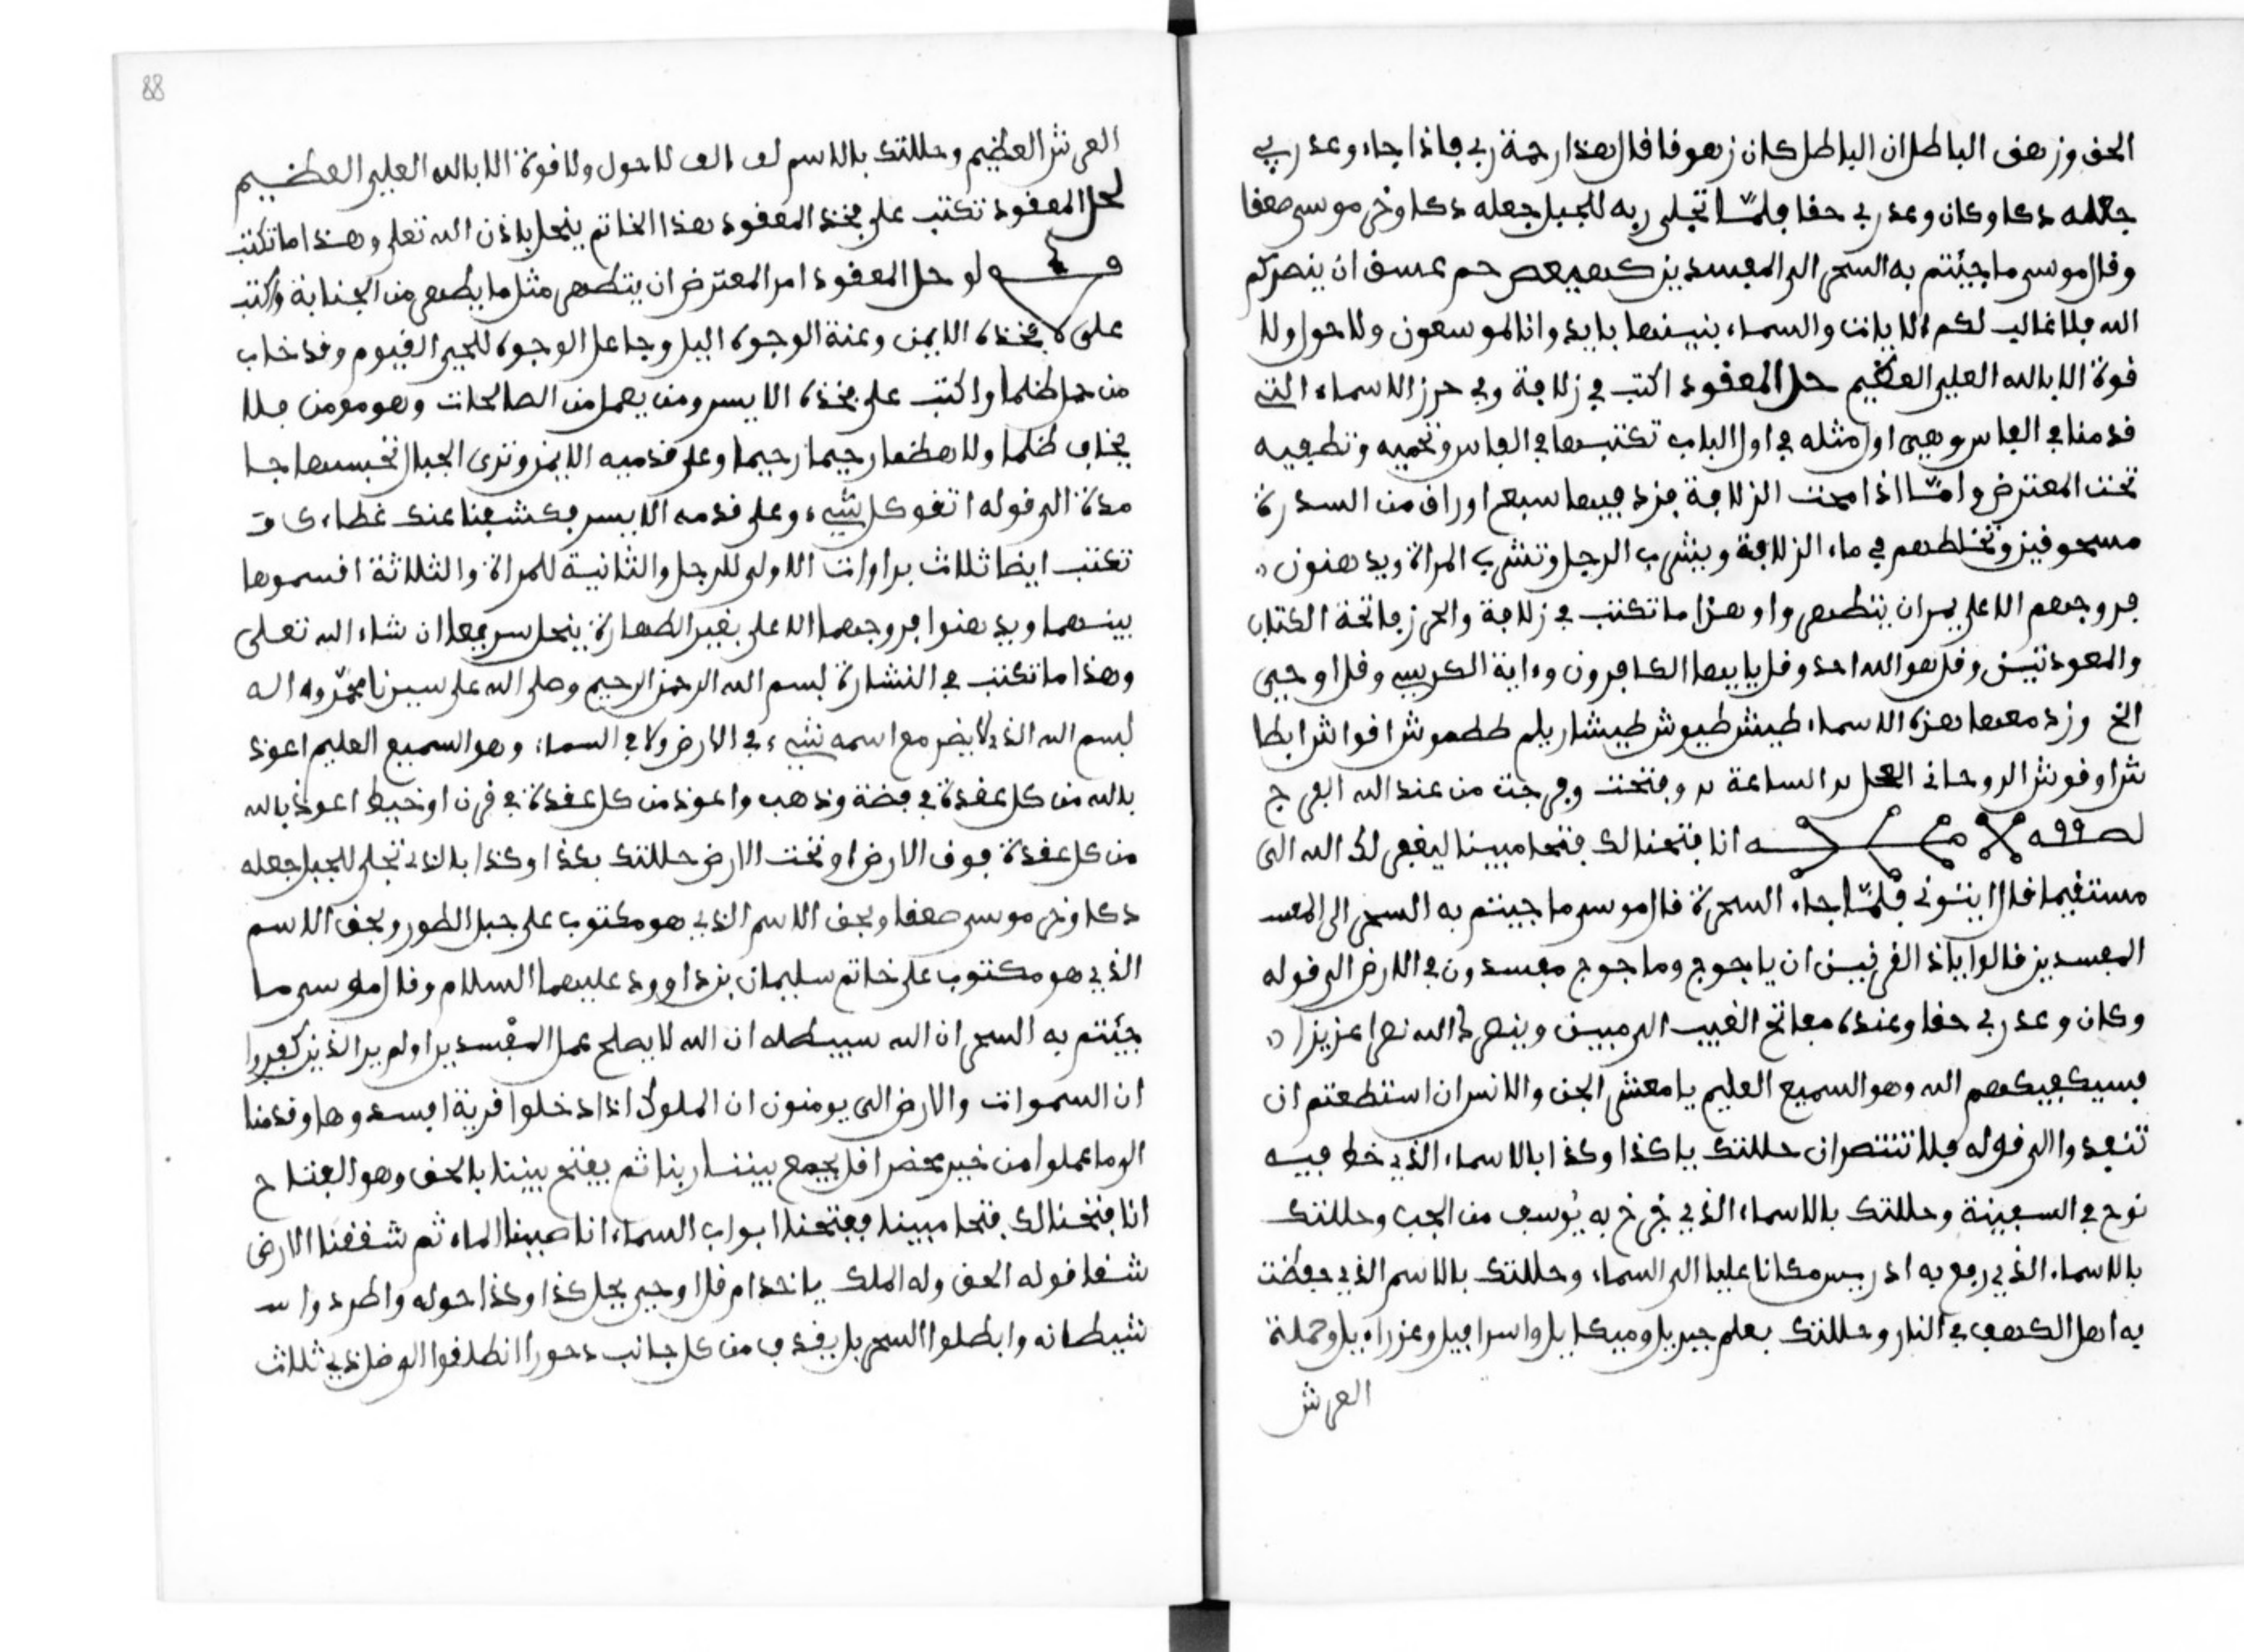 الحق وزهق الباطل ان الباطل كان زهوقا قال هذا رحمة ربي فاذا جاء وعد ربي
جعله دكا وكان وعد ربي حقا فلمّا تجلى ربه للجبل جعله دكا وخر موسى صعقا
وقال موسى ما جئتم به السحر الى المفسدين كهيعص حم عسق ان ينصركم
الله فلا غالب لكم الا يانت والسماء بنينها بايد وانا لموسعون ولا حول ولا
قوة الا بالله العلي العظيم حل المعقود اكتب في زلافة وفي حرز الاسماء التي
قدمنا في الفاس وهي اول مثله في اول الباب تكتبها في الفاس وتحميه وتطفيه
تحت المعترض وامّا اذا محت الزلافة فزد فيها سبع اوراق من السدرة
مسحوقين وتخلطهم في ماء الزلافة ويشرب الرجل وتشرب المراة ويدهنون
فروجهم الاعلي يران يتطهروا وهذا ما تكتب في زلافة والحرز فاتحة الكتاب
والمعوذتين وقل هو الله احد وقل يايها الكافرون وءاية الكرسي وقل اوحي
الخ وزد معها هذه الاسماء طيش طيوش طيشا ريلم طلهموش اقواش ابطا
ش اوقوش الروحاني العجل الساعة وفتحت وفرجت من عند الله الفرج
انا فتحنا لك فتحا مبينا ليغفر لك الله الى
مستقيما قال ايتوني فلمّا جاء السحرة قال موسى ما جيتم به السحر الى المفسد
المفسدين قالوا ياذ القرنين ان ياجوج وماجوج مفسدون في الارض الى قوله
وكان وعد ربي حقا وعنده مفاتح الغيب الى مبين وينصرك الله نصرا عزيزا
فسيكفيكهم الله وهو السميع العليم يا معشر الجن والانس ان استطعتم ان
تنفذوا الى قوله فلا تنتصران حللتك يا كذا وكذا بالاسماء الذي خط فيه
نوح في السفينة وحللتك بالاسماء الذي خرج به يوسف من الجب وحللتك
بالاسماء الذي رفع به ادريس مكانا عليا الى السماء وحللتك بالاسم الذي حفظت
به اهل الكهف في النار وحللتك بعلم جبريل وميكايل واسرافيل وعزراءيل وحملة
العرش
88
العرش العظيم وحللتك بالاسم لف الف لا حول ولا قوة الا بالله العلي العظيم
لحل المعقود تكتب على فخذ المعقود هذا الخاتم ينحل باذن الله تعلى وهذا ما تكتب
لو حل المعقود امر المعترض ان يتطهر مثل ما يطهر من الجنابة واكتب
على فخذه الايمن وعنة الوجوه اليل وجاعل الوجوه للحي القيوم وقد خاب
من حمل ظلما واكتب على فخذه الايسر ومن يعمل من الصالحات وهو مومن فلا
يخاف ظلما ولا هظما رحيما رحيما وعلى قدميه الايمن وترى الجبال تحسبها جا
مدة الى قوله اتقو كل شيء وعلى قدمه الايسر فكشفنا عنك غطاءك ق
تكتب ايضا ثلاث براوات الاولى للرجل والثانية للمراة والثلاثة اقسموها
بينهما ويدهنوا فروجهما الاعلي بغير الطهارة ينحل سريعا ان شاء الله تعلى
وهذا ما تكتب في النشارة بسم الله الرحمن الرحيم وصلى الله على سيدنا محمّد واله
بسم الله الذي لا يضر مع اسمه شيء في الارض ولا في السماء وهو السميع العليم اعوذ
بالله من كل عقدة في فضة وذهب واعوذ من كل عقدة في قرن او خيط اعوذ بالله
من كل عقدة فوق الارض او تحت الارض حللتك بكذا وكذا بالذي تجلى للجبل جعله
دكا وخر موسى صعقا وبحق الاسم الذي هو مكتوب على جبل الطور وبحق الاسم
الذي هو مكتوب على خاتم سليمان بن داوود عليهما السلام وقال موسى ما
جئتم به السحر ان الله سيبطله ان الله لا يصلح عمل المفسدين اولم ير الذين كفروا
ان السموات والارض الى يومنون ان الملوك اذا دخلوا قرية افسدوها وقدمنا
الى ما عملوا من خير محضرا قل يجمع بيننا ربنا ثم يفتح بيننا بالحق وهو الفتاح
انا فتحنا لك فتحا مبينا ففتحنا ابواب السماء انا صببنا الماء ثم شققنا الارض
شقا قوله الحق وله الملك يا خدام قل اوحي بحل كذا وكذا حوله واطردوا
شيطانه وابطلوا السحر بل يقذف من كل جانب دحورا انطلقوا الى ظل ذي ثلاث